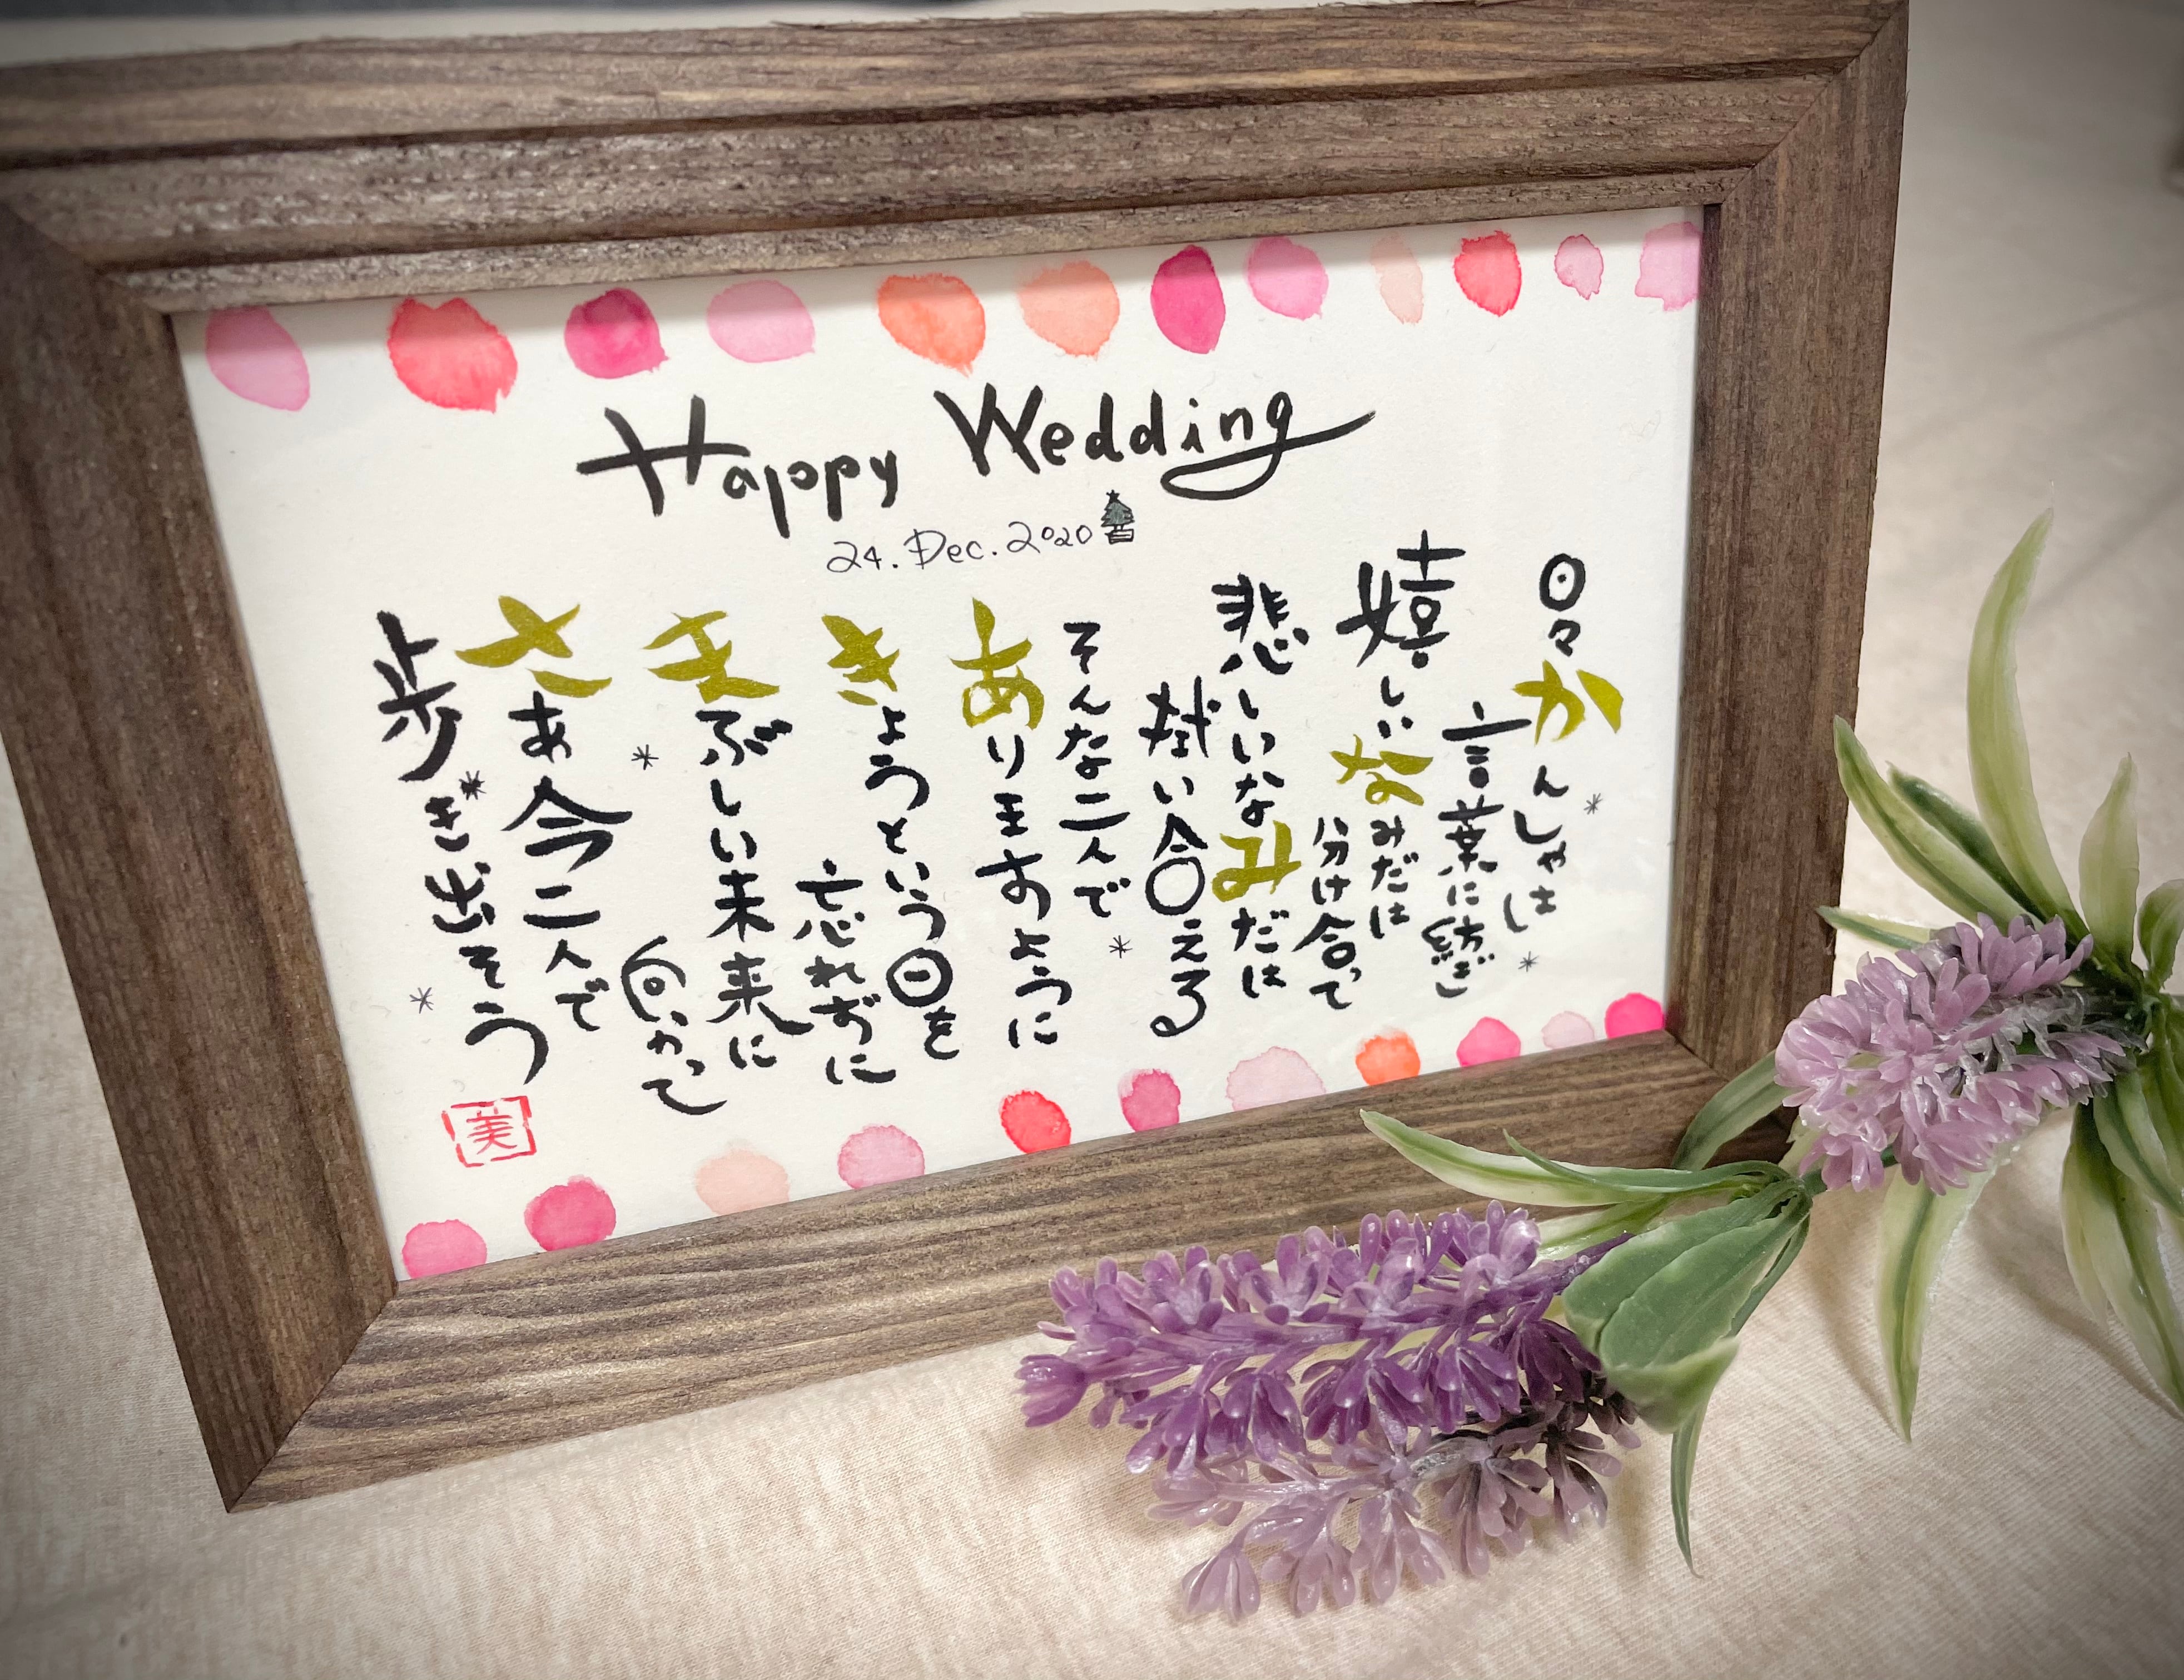 Happy Wedding
24. Dec. 2020
日々かんしゃはし
言葉に紡ぎ
嬉しいなみだは
分け合って
悲しいなみだは
拭い合える
そんな二人で
ありますように
きょうという日を
忘れずに
まぶしい未来に
向かって
さあ今二人で
歩き出そう
美